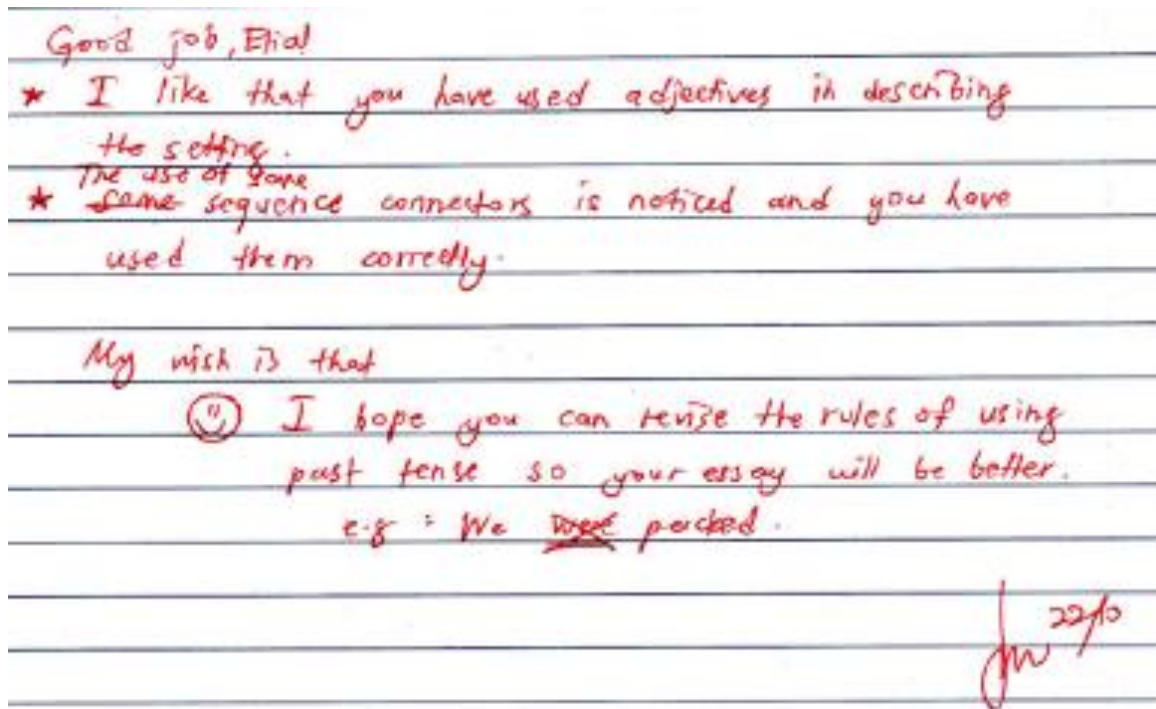 Good job, Elia!
★ I like that you have used adjectives in describing
the setting.
The use of some
★ some sequence connectors is noticed and you have
used them correctly.
My wish is that
I hope you can revise the rules of using
past tense so your essay will be better.
e.g : We were packed.
22/10